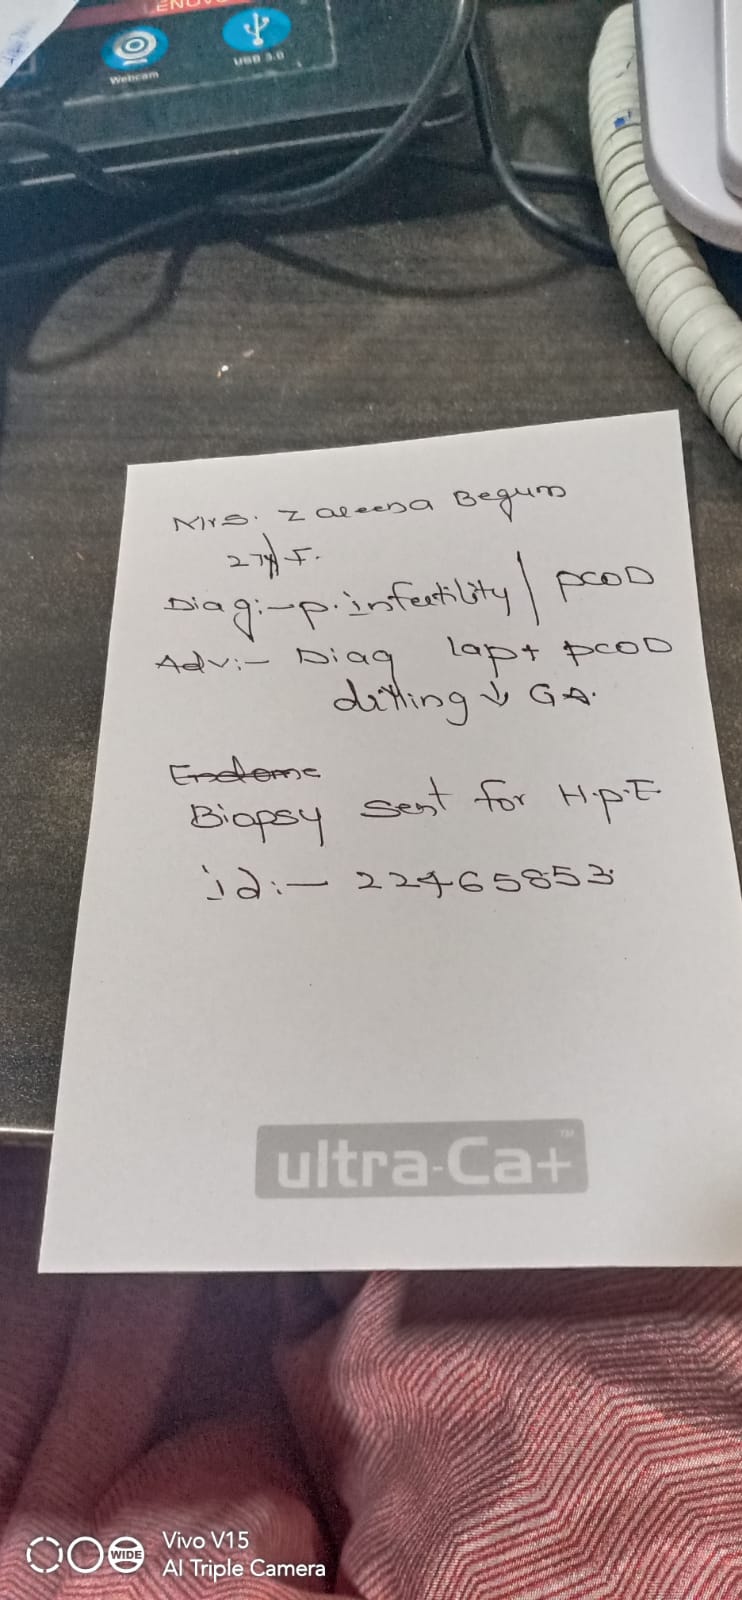 ENOVO
Webcam
USB 3.0
Mrs. Zaleena Begum
27y/F.
Diag:- p.infertility / PCOD
Adv:- Diag lap + PCOD
drilling ↓ GA.
Endome
Biopsy sent for H.P.E
id:- 22465853
ultra-Ca+™
WIDE
Vivo V15
AI Triple Camera